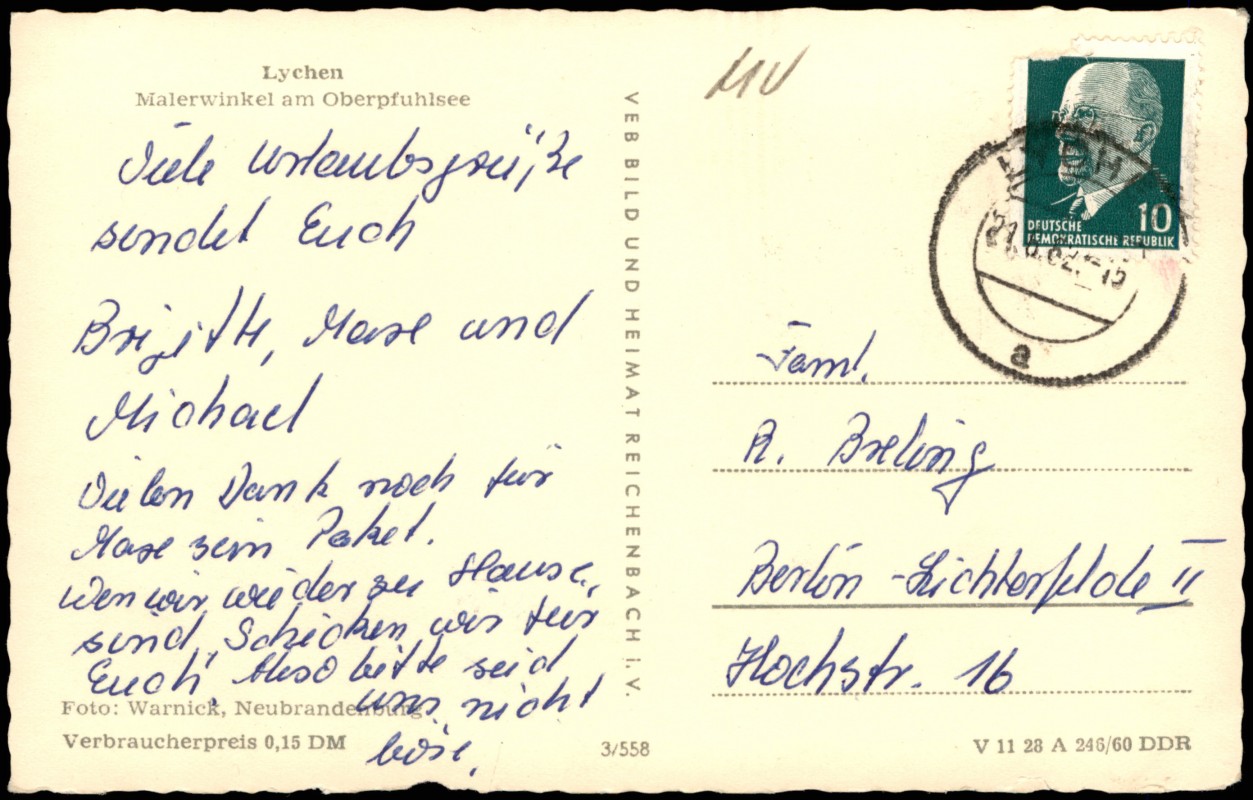 Lychen
Malerwinkel am Oberpfuhlsee
Viele Urlaubsgrüße
sendet Euch
Brigitte, Maxe und
Michael
Vielen Dank noch für
Maxe sein Paket.
Wen wir wieder zu Hause
sind, Schicken wir für
Euch, Also bitte seid
uns nicht
böse.
Foto: Warnick, Neubrandenburg
Verbraucherpreis 0,15 DM
VEB BILD UND HEIMAT REICHENBACH I. V.
3/558
MV
10
DEUTSCHE
DEMOKRATISCHE REPUBLIK
a
Faml.
R. Breling
Berlin-Lichterfelde II
Hochstr. 16
V 11 28 A 246/60 DDR